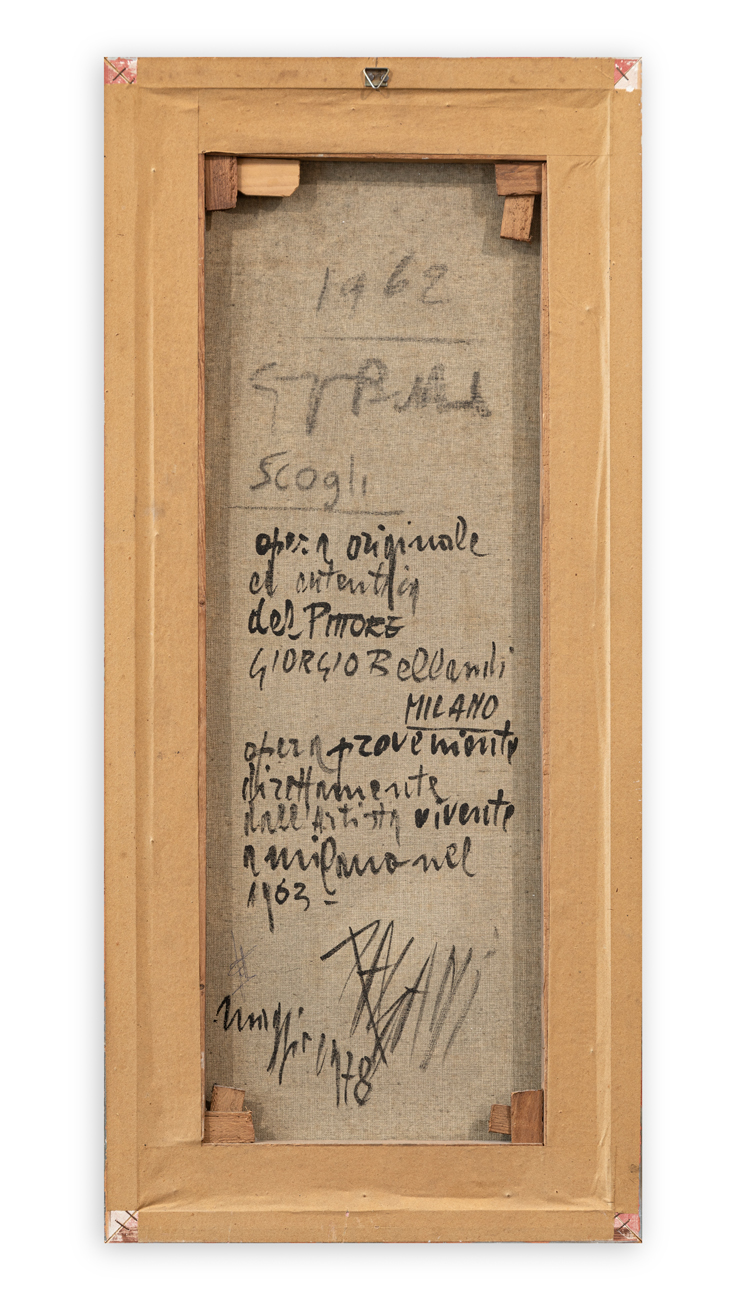 1962
Scogli
opera originale
ed autentica
del PITTORE
GIORGIO Bellandi
MILANO
opera proveniente
direttamente
dall'Artista vivente
a milano nel
1963 -
PAGANI
maggio 1978